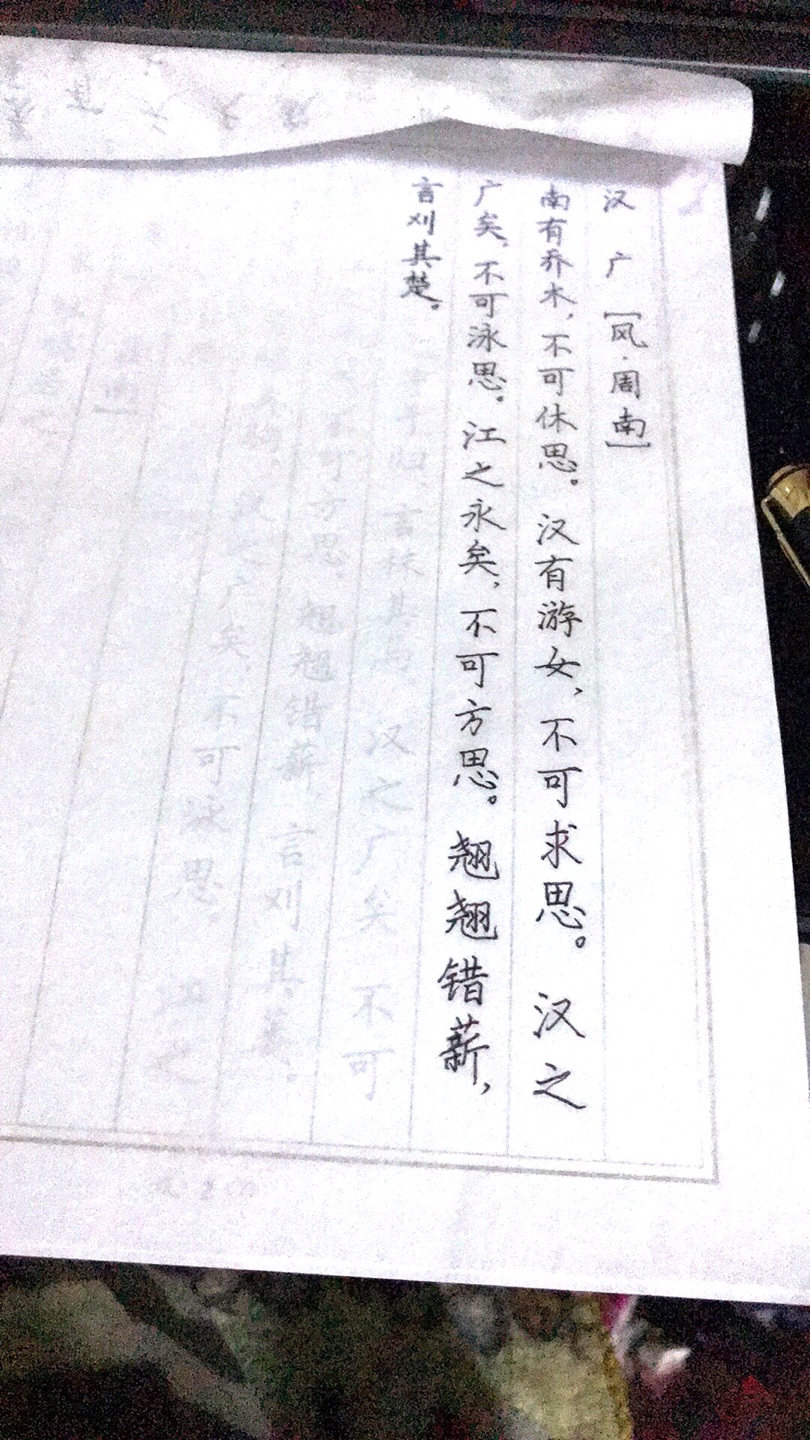 汉 广 [风·周南]
南有乔木，不可休思。汉有游女，不可求思。汉之
广矣，不可泳思。江之永矣，不可方思。翘翘错薪，
言刈其楚。